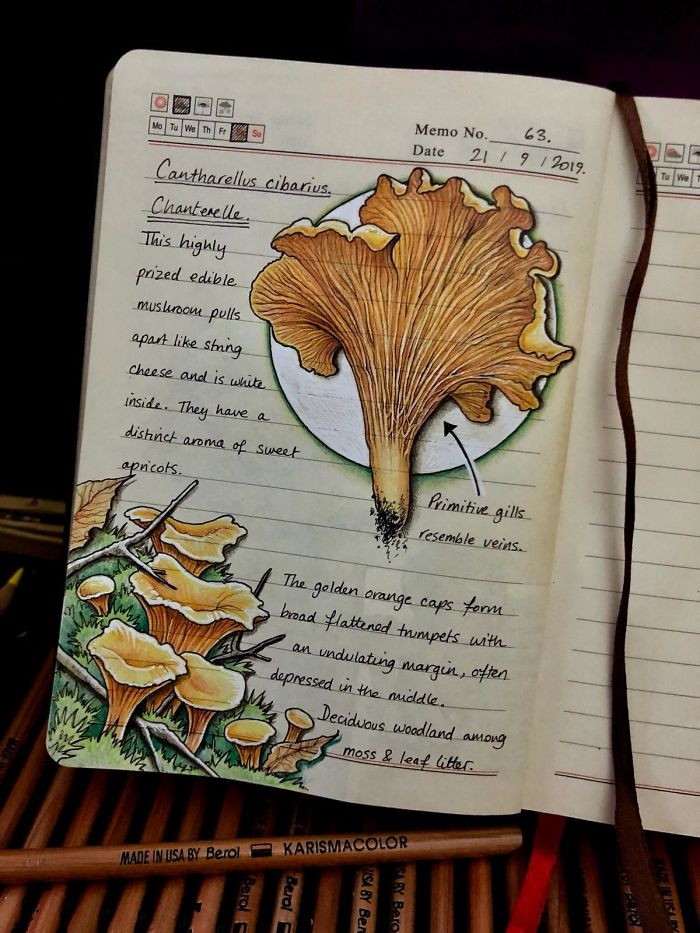 Mo Tu We Th Fr Su
Memo No. 63.
Date 21 / 9 / 2019.
Cantharellus cibarius.
Chanterelle.
This highly
prized edible
mushroom pulls
apart like string
cheese and is white
inside. They have a
distinct aroma of sweet
apricots.
Primitive gills
resemble veins.
The golden orange caps form
broad flattened trumpets with
an undulating margin, often
depressed in the middle.
Deciduous woodland among
moss & leaf litter.
Tu We T
MADE IN USA BY Berol KARISMACOLOR
Berol
USA BY Berol
MADE IN USA